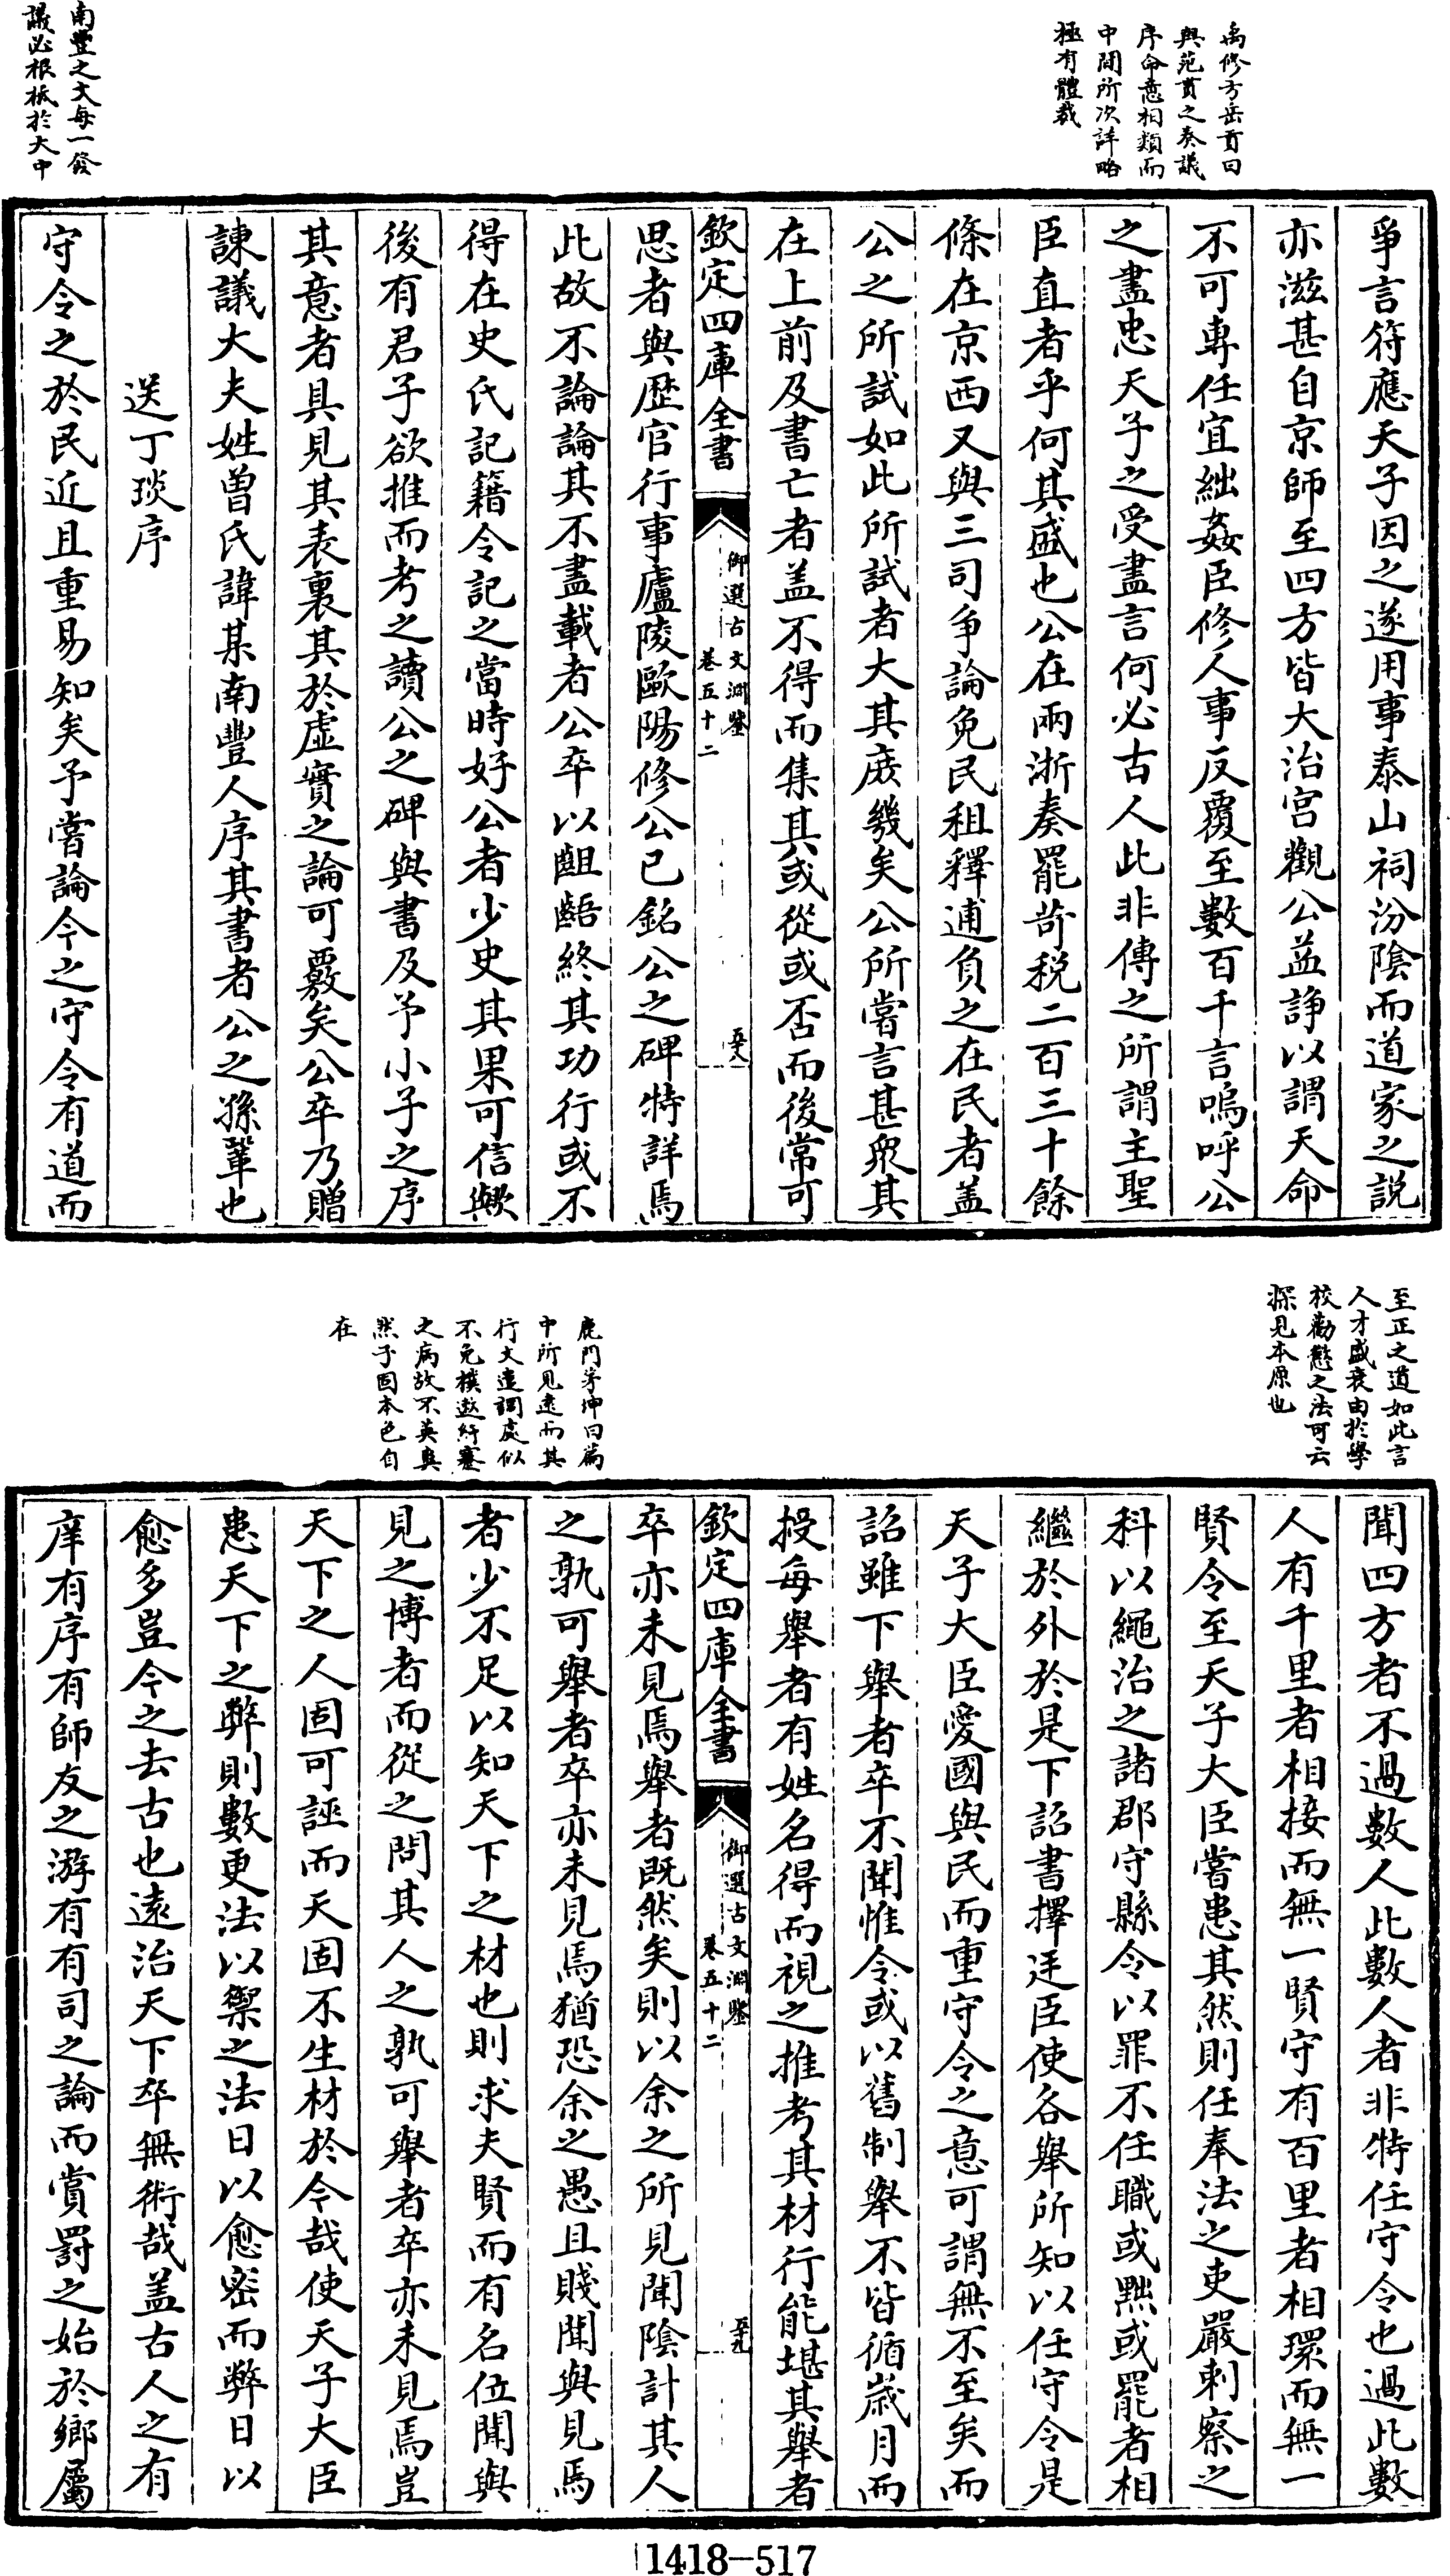 禹修方岳貢曰
與范貫之奏議
序命意相類而
中間所次詳略
極有體裁
南豐之文每一發
議必根柢於大中
爭言符應天子因之遂用事泰山祠汾隂而道家之説
亦滋甚自京師至四方皆大治宫觀公益諍以謂天命
不可專任宜絀姦臣修人事反覆至數百千言嗚呼公
之盡忠天子之受盡言何必古人此非傳之所謂主聖
臣直者乎何其盛也公在兩浙奏罷苛税二百三十餘
條在京西又與三司爭論免民租釋逋負之在民者盖
公之所試如此所試者大其庻幾矣公所嘗言甚衆其
在上前及書亡者盖不得而集其或從或否而後常可
欽定四庫全書
御選古文淵鑒
卷五十二
五十八
思者與歴官行事廬陵歐陽修公已銘公之碑特詳焉
此故不論論其不盡載者公卒以齟齬終其功行或不
得在史氏記籍令記之當時好公者少史其果可信歟
後有君子欲推而考之讀公之碑與書及予小子之序
其意者具見其表裏其於虚實之論可覈矣公卒乃贈
諫議大夫姓曽氏諱某南豐人序其書者公之孫鞏也
送丁琰序
守令之於民近且重易知矣予嘗論今之守令有道而
至正之道如此言
人才盛衰由於學
校勸懲之法可云
探見本原也
鹿門茅坤曰篇
中所見逺而其
行文遣調處似
不免樸遬紆蹇
之病故不英爽
然子固本色自
在
聞四方者不過數人此數人者非特任守令也過此數
人有千里者相接而無一賢守有百里者相環而無一
賢令至天子大臣嘗患其然則任奉法之吏嚴刺察之
科以繩治之諸郡守縣令以罪不任職或黜或罷者相
繼於外於是下詔書擇廷臣使各舉所知以任守令是
天子大臣愛國與民而重守令之意可謂無不至矣而
詔雖下舉者卒不聞惟令或以舊制舉不皆循嵗月而
授每舉者有姓名得而視之推考其材行能堪其舉者
欽定四庫全書
御選古文淵鑒
卷五十二
五十九
卒亦未見焉舉者既然矣則以余之所見聞隂計其人
之孰可舉者卒亦未見焉猶恐余之愚且賤聞與見焉
者少不足以知天下之材也則求夫賢而有名位聞與
見之博者而從之問其人之孰可舉者卒亦未見焉豈
天下之人固可誣而天固不生材於今哉使天子大臣
患天下之弊則數更法以禦之法日以愈密而弊日以
愈多豈今之去古也逺治天下卒無術哉盖古人之有
庠有序有師友之游有有司之論而賞罰之始於鄉屬
1418-517